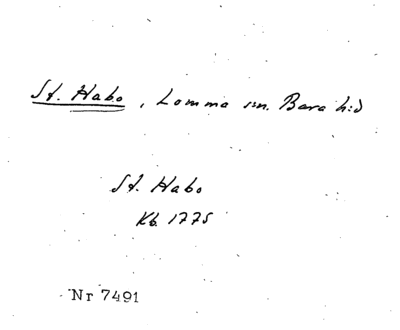 St. Habo, Lomma sn. Bara h:d
St. Habo
Kb. 1775
Nr 7491